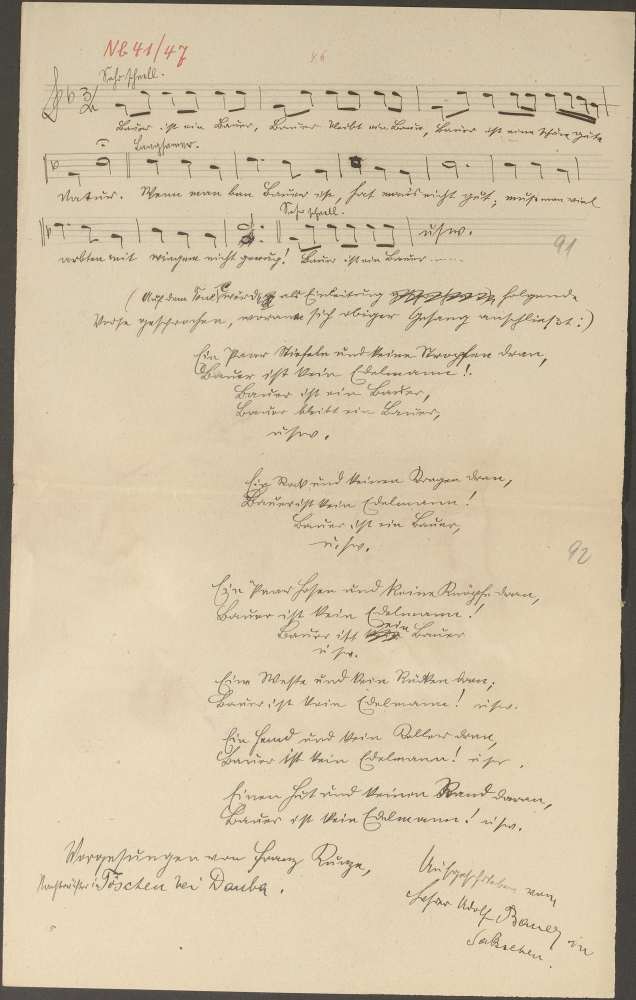 Nb 41/47
46
Sehr schnell.
Bauer ist ein Bauer, Bauer bleibt ein Bauer, Bauer ist eine schöne gute
Langsamer.
Natur. Wenn man ben Bauer ist, hat mans nicht gut; muß man viel
Sehr schnell.
arbten mit ringen nicht genug! Bauer ist ein Bauer ......
usw.
91
(Auf dem wird als Einleitung folgende
Verse gesprochen, woran sich obiger Gesang anschließt:)
Ein Paar Stiefeln und keine Strupfen dran,
Bauer ist kein Edelmann!
Bauer ist ein Bauer,
Bauer bleibt ein Bauer,
usw.
Ein Rock und keinen Kragen dran,
Bauer ist kein Edelmann!
Bauer ist ein Bauer,
u. sw.
92
Ein Paar Hosen und keine Knöpfe dran,
Bauer ist kein Edelmann!
Bauer ist ein Bauer
usw.
Eine Weste und kein Rücken dran;
Bauer ist kein Edelmann! usw.
Ein Hemd und kein Koller dran,
Bauer ist kein Edelmann! usw.
Einen Hut und keinen Rand daran,
Bauer ist kein Edelmann! usw.
Vorgesungen von Franz Kunze,
Nachtwächter in Töschen bei Dauba.
Aufgeschrieben vom
Lehrer Adolf Bauer in
Sakschen.